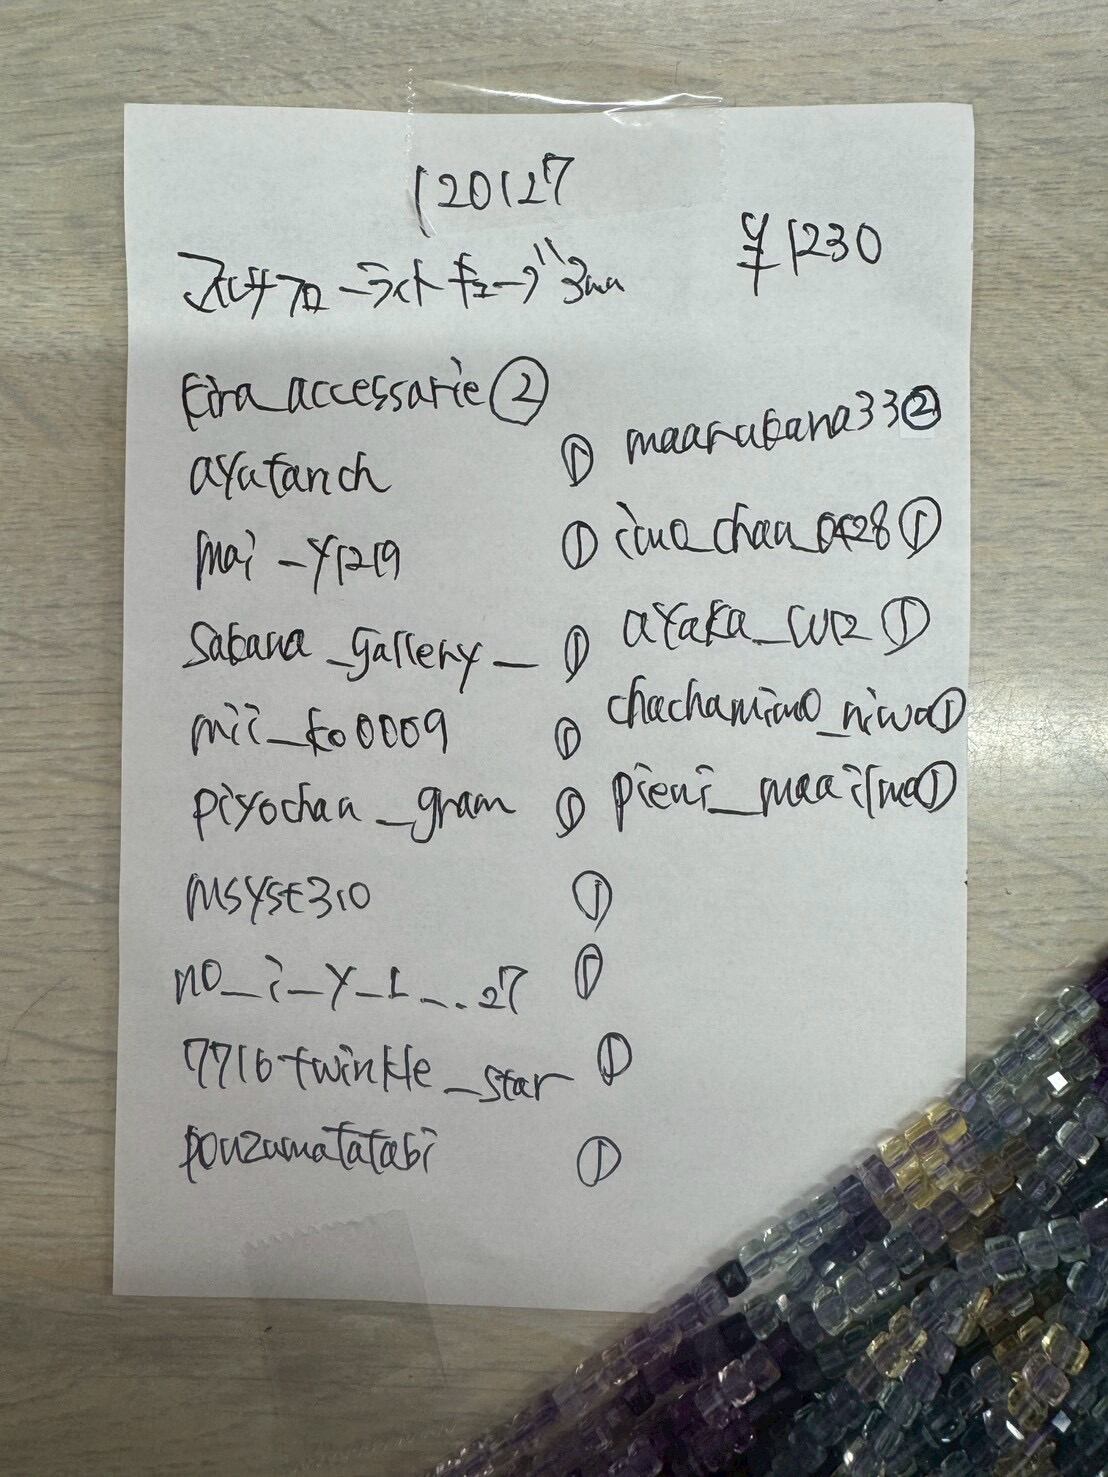 120127
¥1230
マルチフローライトキューブ3mm
kira_accessarie ②
ayutanch ①
mai_y1219 ①
sakana_gallery_ ①
mii_ko0009 ①
piyochan_gram ①
msyst310 ①
no_i_y_1_..27 ①
7716twinkle_star ①
ponzumatatabi ①
maarukana33 ②
①
ayaka_ ①
chachamimo_niwa ①
pieni_maailma ①